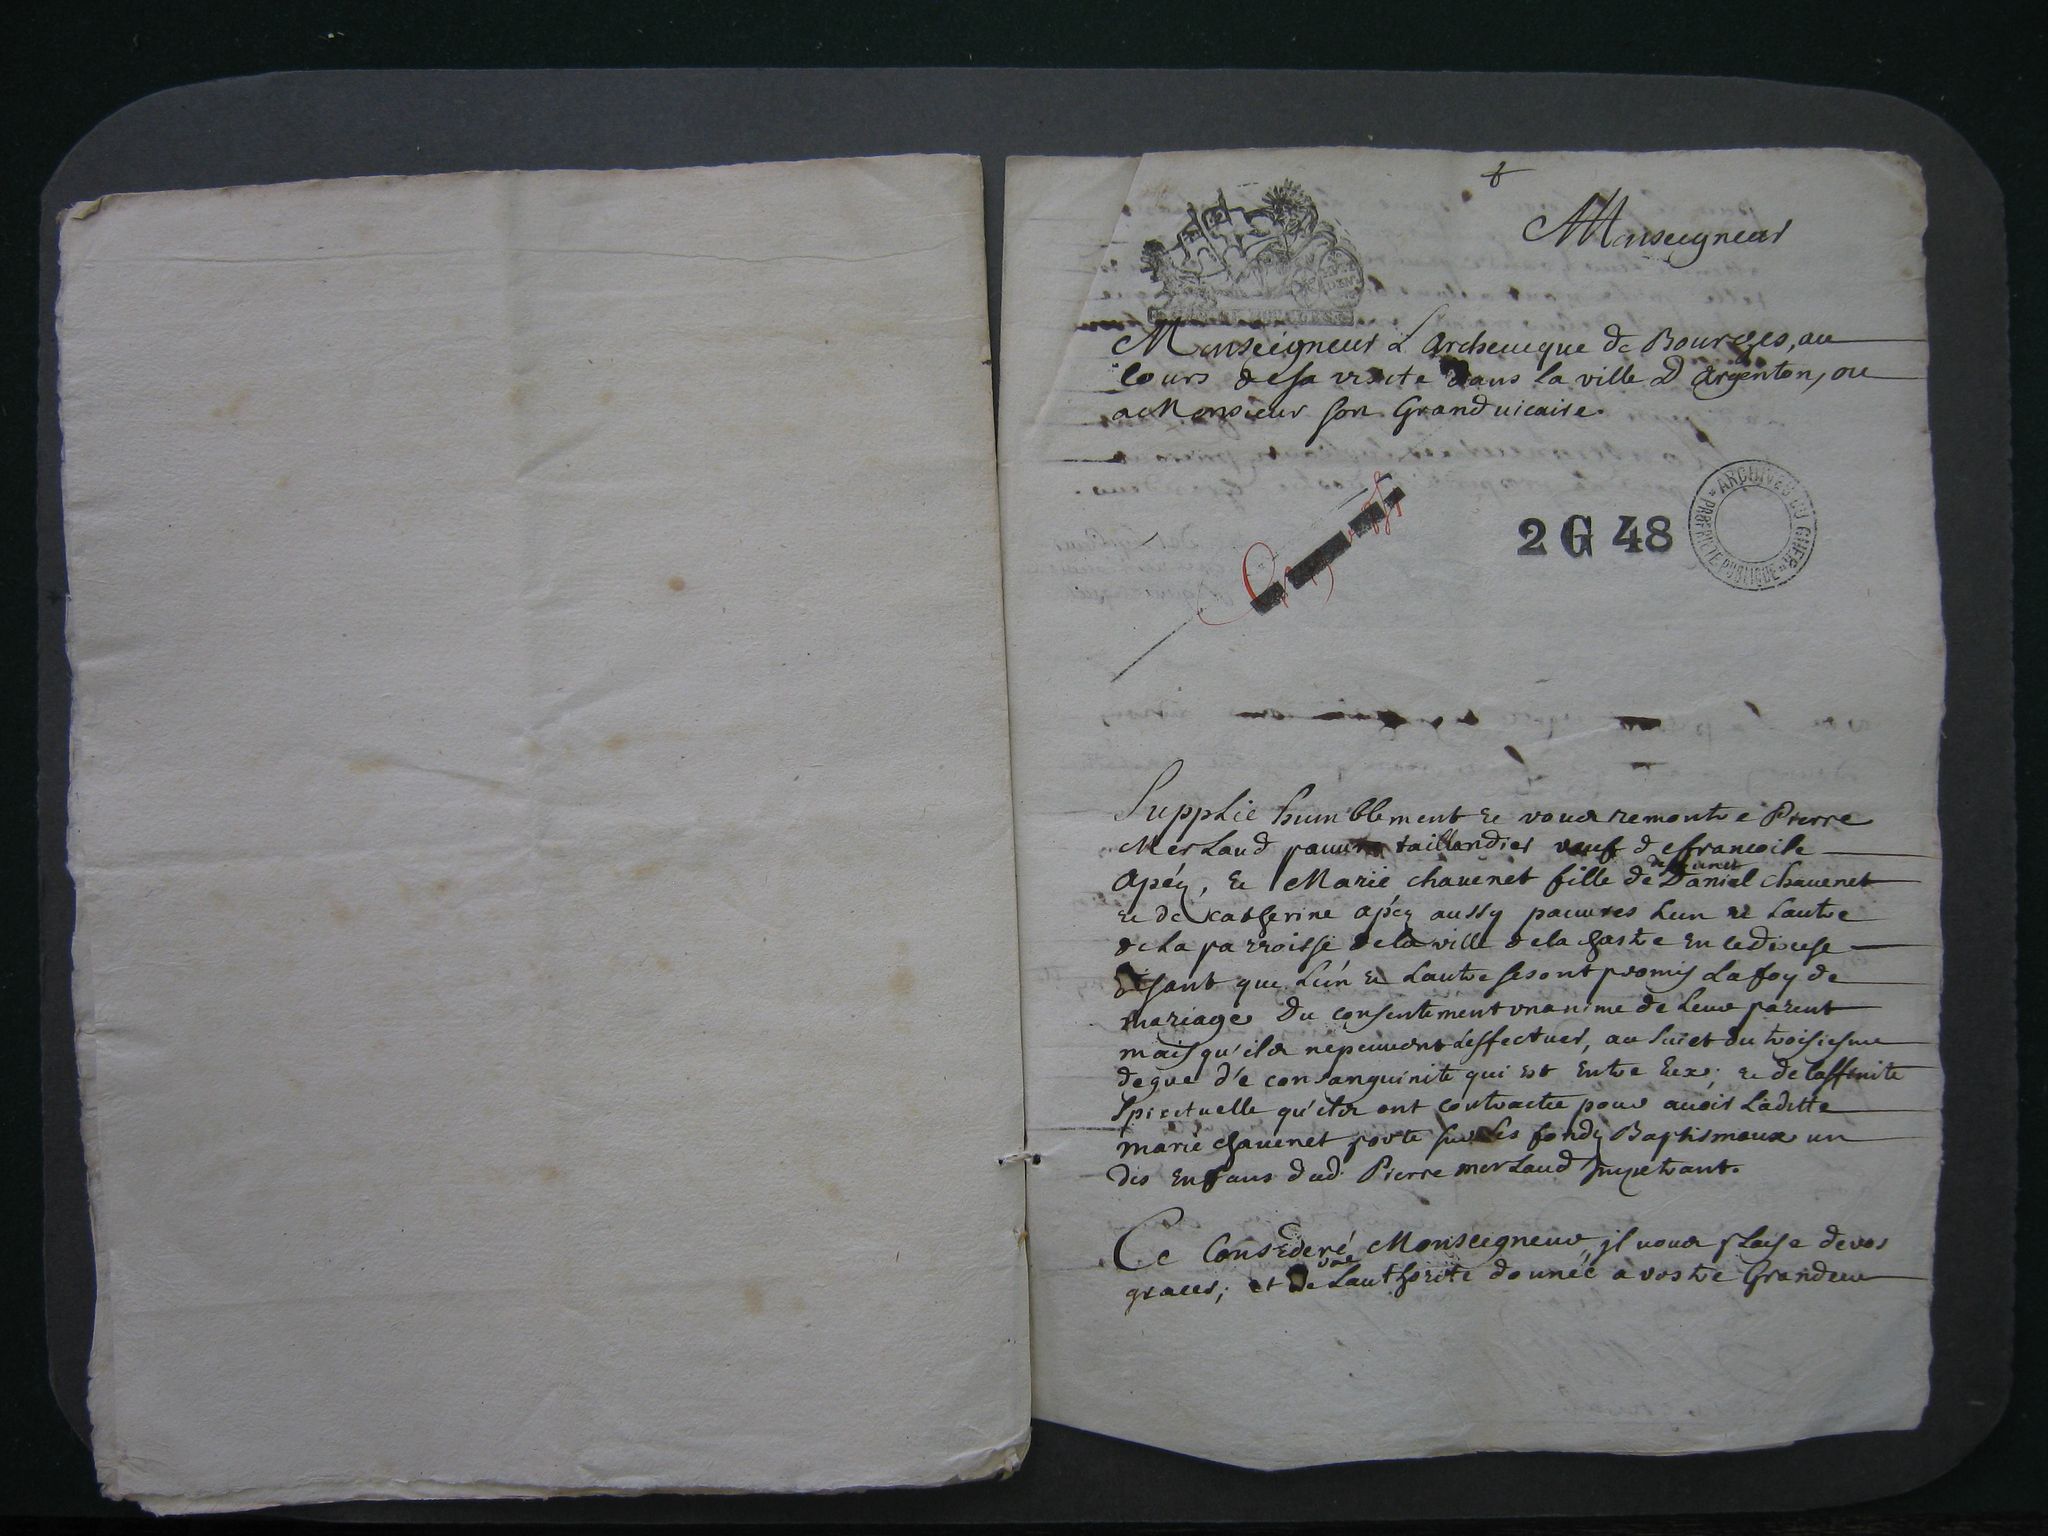 Monseigneur
Monseigneur L Archeueque de Bourges, au
Cours de sa visite dans la ville D Argenton, ou
a Monsieur son Grand uicaire.
2 G 48
ARCHIVES DU CHER
PROPRIETE PUBLIQUE
Supplie humblement et vous remontre Pierre
Merlaud pauure taillandier veuf de francoise
Apéy, et Marie chauenet fille de Daniel chauenet
et de Katherine apéy aussy pauures Lun et Lautre
de La parroisse de la ville de la chastre en ce diocese
Disant que Lun et Lautre se sont promis La foy de
mariage Du consentement unanime de Leur parent
mais qu'ils ne peuuent L'effectuer, au suiet du troisiesme
degre de consanguinite qui est Entre Eux; et de Laffinite
spirituelle qu'ils ont contractée pour auoir Laditte
marie chauenet porte sur Les fonds Baptismaux un
des Enfans dud Pierre merLaud Impetrant.
Ce Consideré Monseigneur, il vous plaise de vos
graces, et de Lauthorite donnée a vostre Grandeur